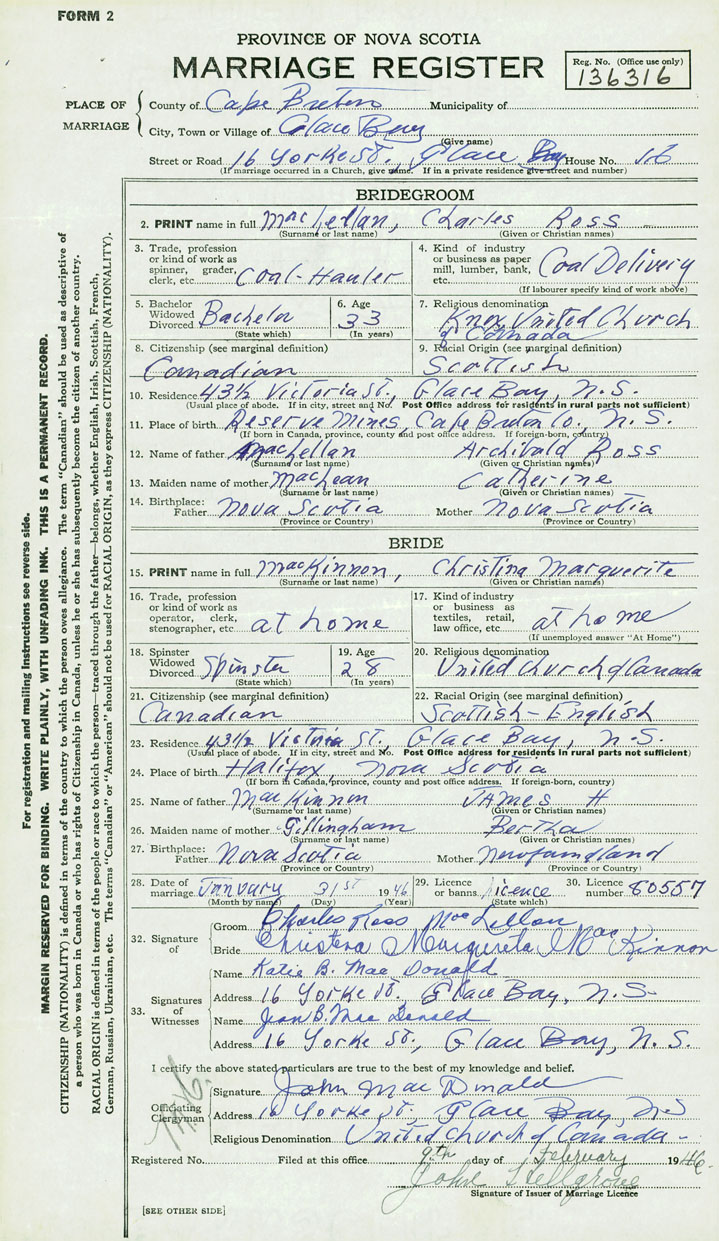 FORM 2
PROVINCE OF NOVA SCOTIA
MARRIAGE REGISTER
Reg. No. (Office use only)
136316
PLACE OF MARRIAGE
County of Cape Breton Municipality of
City, Town or Village of Glace Bay
(Give name)
Street or Road 16 Yorke St., Glace Bay House No. 16
(If marriage occurred in a Church, give name. If in a private residence give street and number)
BRIDEGROOM
2. PRINT name in full MacLellan, Charles Ross
(Surname or last name) (Given or Christian names)
3. Trade, profession or kind of work as spinner, grader, clerk, etc. Coal-Hauler
4. Kind of industry or business as paper mill, lumber, bank, etc. Coal Delivery
(If labourer specify kind of work above)
5. Bachelor Widowed Divorced Bachelor
(State which)
6. Age 33
(In years)
7. Religious denomination Knox United Church of Canada
8. Citizenship (see marginal definition) Canadian
9. Racial Origin (see marginal definition) Scottish
10. Residence 43½ Victoria St., Glace Bay, N.S.
(Usual place of abode. If in city, street and No. Post Office address for residents in rural parts not sufficient)
11. Place of birth Reserve Mines, Cape Breton Co., N.S.
(If born in Canada, province, county and post office address. If foreign-born, country)
12. Name of father MacLellan Archibald Ross
(Surname or last name) (Given or Christian names)
13. Maiden name of mother MacLean Catherine
(Surname or last name) (Given or Christian names)
14. Birthplace: Father Nova Scotia Mother Nova Scotia
(Province or Country) (Province or Country)
BRIDE
15. PRINT name in full MacKinnon, Christina Marguerite
(Surname or last name) (Given or Christian names)
16. Trade, profession or kind of work as operator, clerk, stenographer, etc. at home
17. Kind of industry or business as textiles, retail, law office, etc. at home
(If unemployed answer "At Home")
18. Spinster Widowed Divorced Spinster
(State which)
19. Age 28
(In years)
20. Religious denomination United Church of Canada
21. Citizenship (see marginal definition) Canadian
22. Racial Origin (see marginal definition) Scottish-English
23. Residence 43½ Victoria St., Glace Bay, N.S.
(Usual place of abode. If in city, street and No. Post Office address for residents in rural parts not sufficient)
24. Place of birth Halifox Nova Scotia
(If born in Canada, province, county and post office address. If foreign-born, country)
25. Name of father MacKinnon JAMES H
(Surname or last name) (Given or Christian names)
26. Maiden name of mother Gillingham Bertha
(Surname or last name) (Given or Christian names)
27. Birthplace: Father Nova Scotia Mother Newfoundland
(Province or Country) (Province or Country)
28. Date of marriage January 31st 1946
(Month by name) (Day) (Year)
29. Licence or banns licence
(State which)
30. Licence number 80557
32. Signature of
Groom Charles Ross MacLellan
Bride Christena Margureta MacKinnon
33. Signatures of Witnesses
Name Katie B. MacDonald
Address 16 Yorke St., Glace Bay, N.S.
Name Jean B. MacDonald
Address 16 Yorke St., Glace Bay, N.S.
I certify the above stated particulars are true to the best of my knowledge and belief.
Officiating Clergyman
Signature John MacDonald
Address 16 Yorke St., Glace Bay, N.S
Religious Denomination United Church of Canada
Registered No. Filed at this office 9th day of February 1946
John
Signature of Issuer of Marriage Licence
[SEE OTHER SIDE]
For registration and mailing instructions see reverse side.
MARGIN RESERVED FOR BINDING. WRITE PLAINLY, WITH UNFADING INK. THIS IS A PERMANENT RECORD.
CITIZENSHIP (NATIONALITY) is defined in terms of the country to which the person owes allegiance. The term "Canadian" should be used as descriptive of
a person who was born in Canada or who has rights of Citizenship in Canada, unless he or she has subsequently become the citizen of another country.
RACIAL ORIGIN is defined in terms of the people or race to which the person—traced through the father—belongs, whether English, Irish, Scottish, French,
German, Russian, Ukrainian, etc. The terms "Canadian" or "American" should not be used for RACIAL ORIGIN, as they express CITIZENSHIP (NATIONALITY).